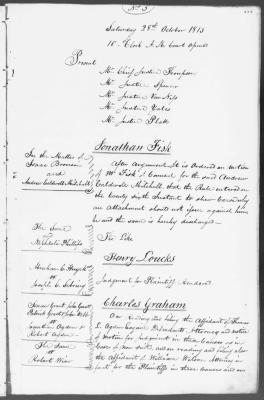 No 5
Saturday 28th October 1815
10. Clock A. M. Court opened
Present
Mr Chief Justice Thompson
Mr Justice Spencer
Mr Justice Van Ness
Mr Justice Yates
Mr Justice Platt
Jonathan Fisk
In the Matter of
Isaac Bronson
and
Andrew Caldwell Mitchell
After argument It is ordered on motion
of Mr Fisk of Counsel for the said Andrew
Caldwell Mitchell, that the Rule entered on
the twenty sixth Instant to shew Cause why
an attachment should not issue against him
be and the same is hereby discharged
The Same
vs
Phillips
The Like
Henry Loucks
Abraham
vs
Joseph
Judgment for Plaintiff
Charles Graham
Isaac Jonathan Ogden &
Robert Ogden
The Same
vs
Robert
On reading and filing the Affidavit of Thomas
L. Ogden Esquire Defendants Attorney and notice
of Motion for Judgment in these Causes as in
Case of non suit, and on reading and filing also
the Affidavit of William Wilson Attorney in
fact for the Plaintiffs in these Causes and on